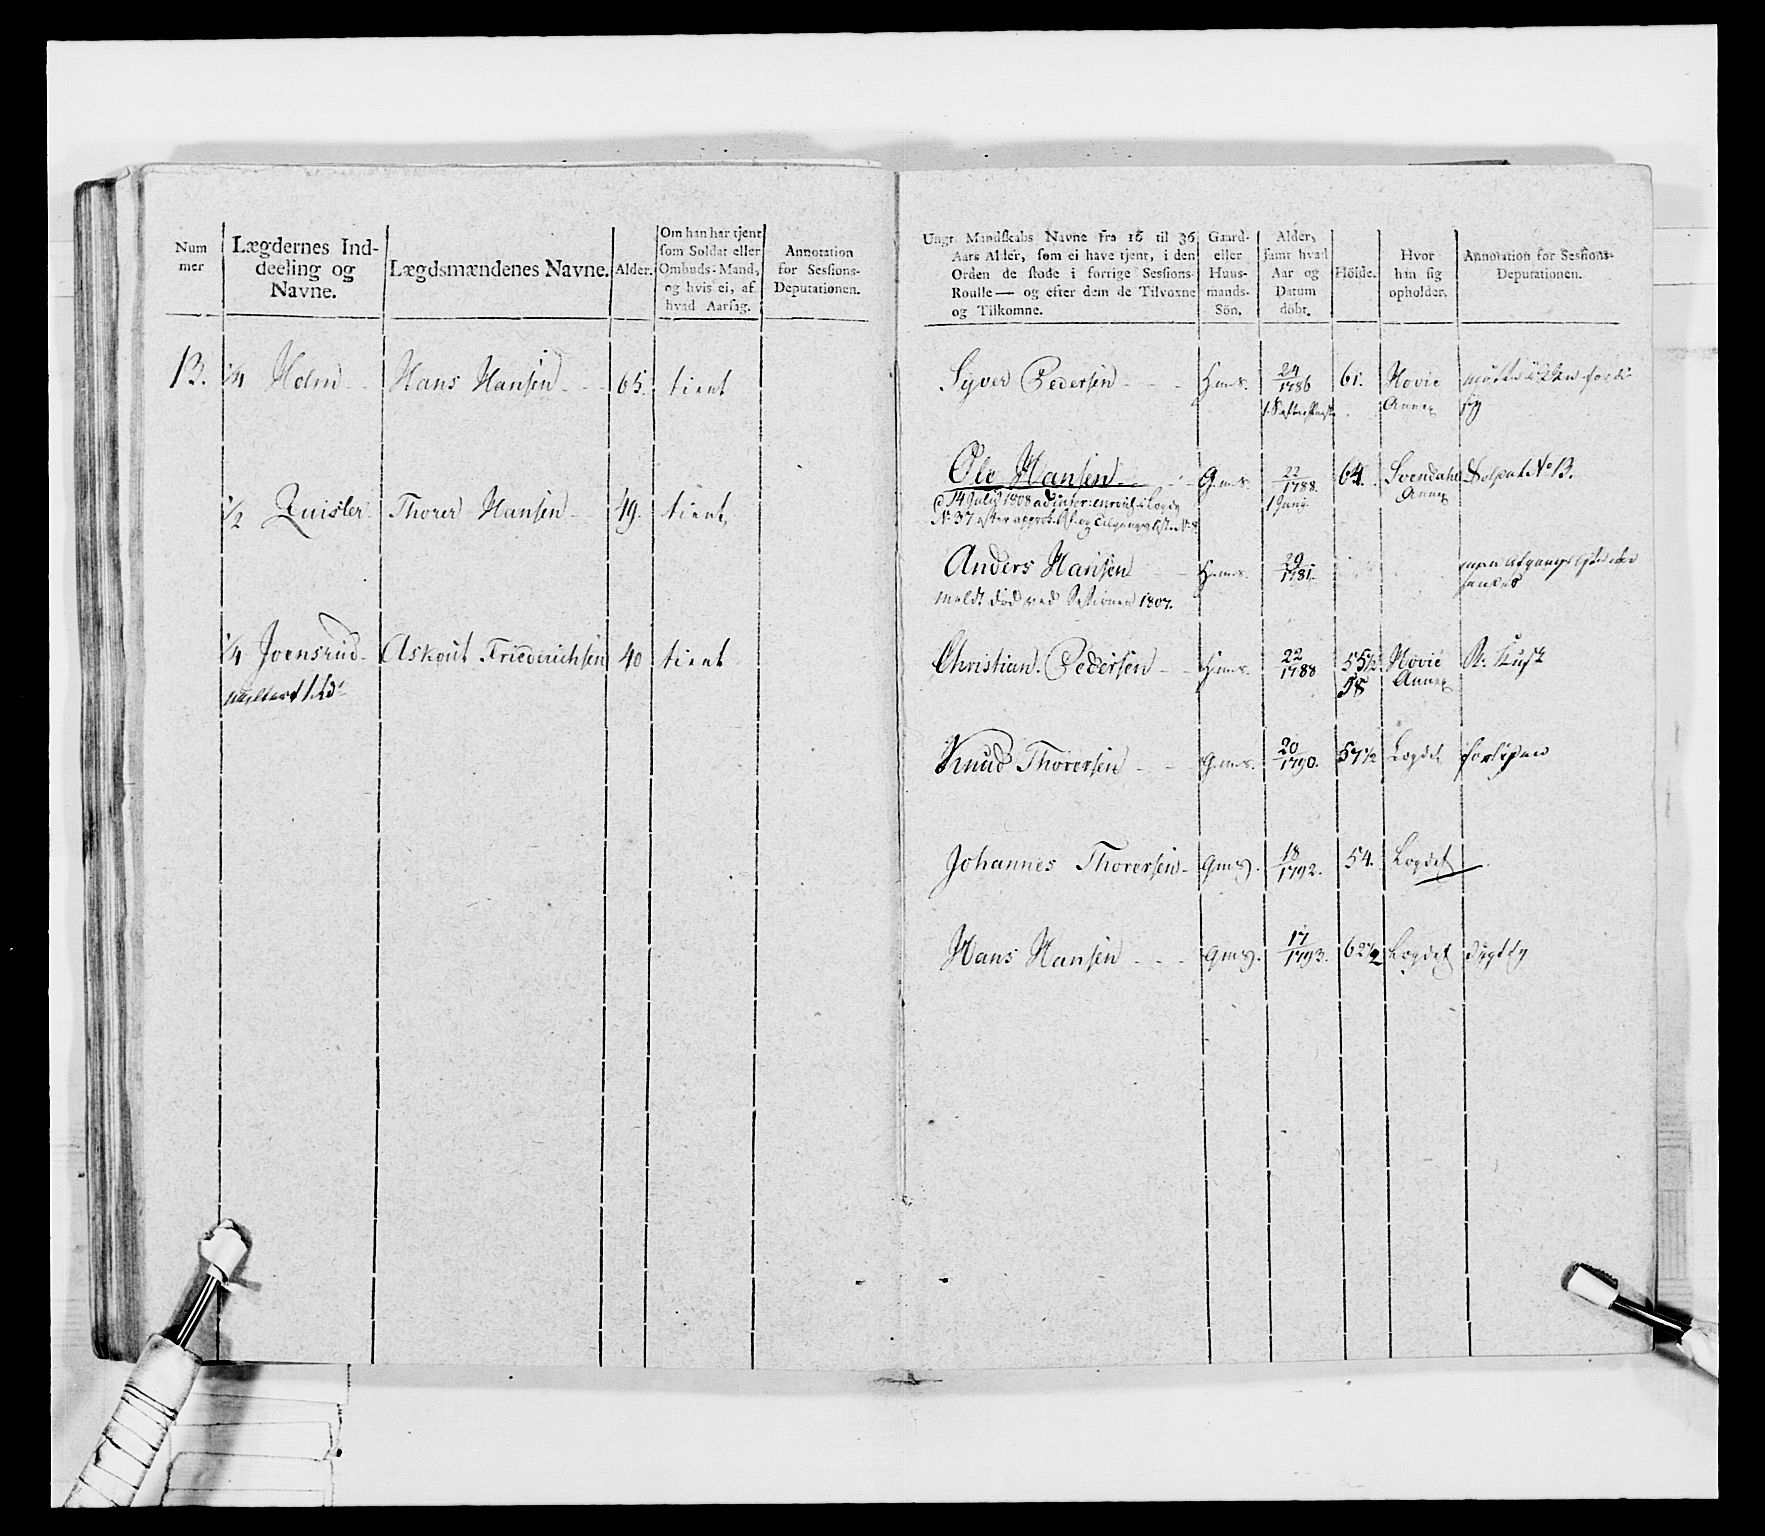 Num
mer
Lægdernes Ind-
deeling og
Navne.
Lægdsmændenes Navne.
Alder.
Om han har tjent
som Soldat eller
Ombuds-Mand,
og hvis ei, af
hvad Aarsag.
Annotation
for Sessions-
Deputationen.
13. 1/4 Holm Hans Hansen 65. tient
1/2 Quisler Thorer Hansen 49. tient
1/4 Joensrud Askout Friederichsen 40 tient
Ungt Mandskabs Navne fra 16 til 36
Aars Alder, som ei have tjent, i den
Orden de stode i forrige Sessions-
Roulle — og efter dem de Tilvoxne
og Tilkomne.
Gaard-
eller
Huus-
mands-
Sön.
Alder,
samt hvad
Aar og
Datum
döbt.
Höide.
Hvor
han sig
opholder.
Annotation for Sessions-
Deputationen.
Syver Pedersen Hms. 24/1786 61. Hovie
Annex
Ole Hansen Gms. 22/1788. 64. Svendahl Soldat No 13.
1 Juny Annex
d 14 July 1808
No 37 efter
Anders Hansen Hms. 29/1781.
meldt död ved Sessionen 1807.
Christian Pedersen Hms. 22/1788 55 1/2 Hovie
58 Annex
Knud Thorersen Gms. 20/1790. 57 1/2 Lægdet
Johannes Thorersen Gms. 18/1792. 54. Lægdet
Hans Hansen Gms. 17/1793. 62 1/2 Lægdet dygtig